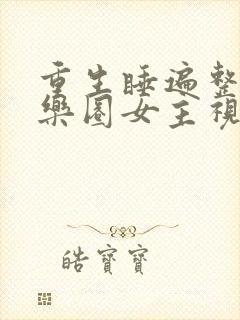 重生睡遍整
樂圈女主視
皓寶寶